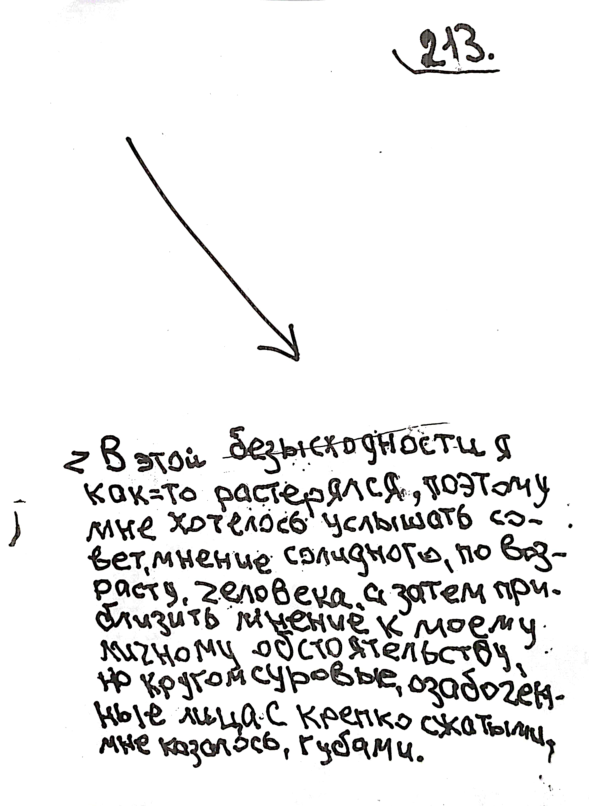 213.
z В этой безысходности я
как=то растерялся, поэтому
мне хотелось услышать со-
вет, мнение солидного, по воз-
расту, человека, а затем при-
близить мнение к моему
личному обстоятельству,
но кругом суровые, озабочен-
ные лица с крепко сжатыми,
мне казалось, губами.